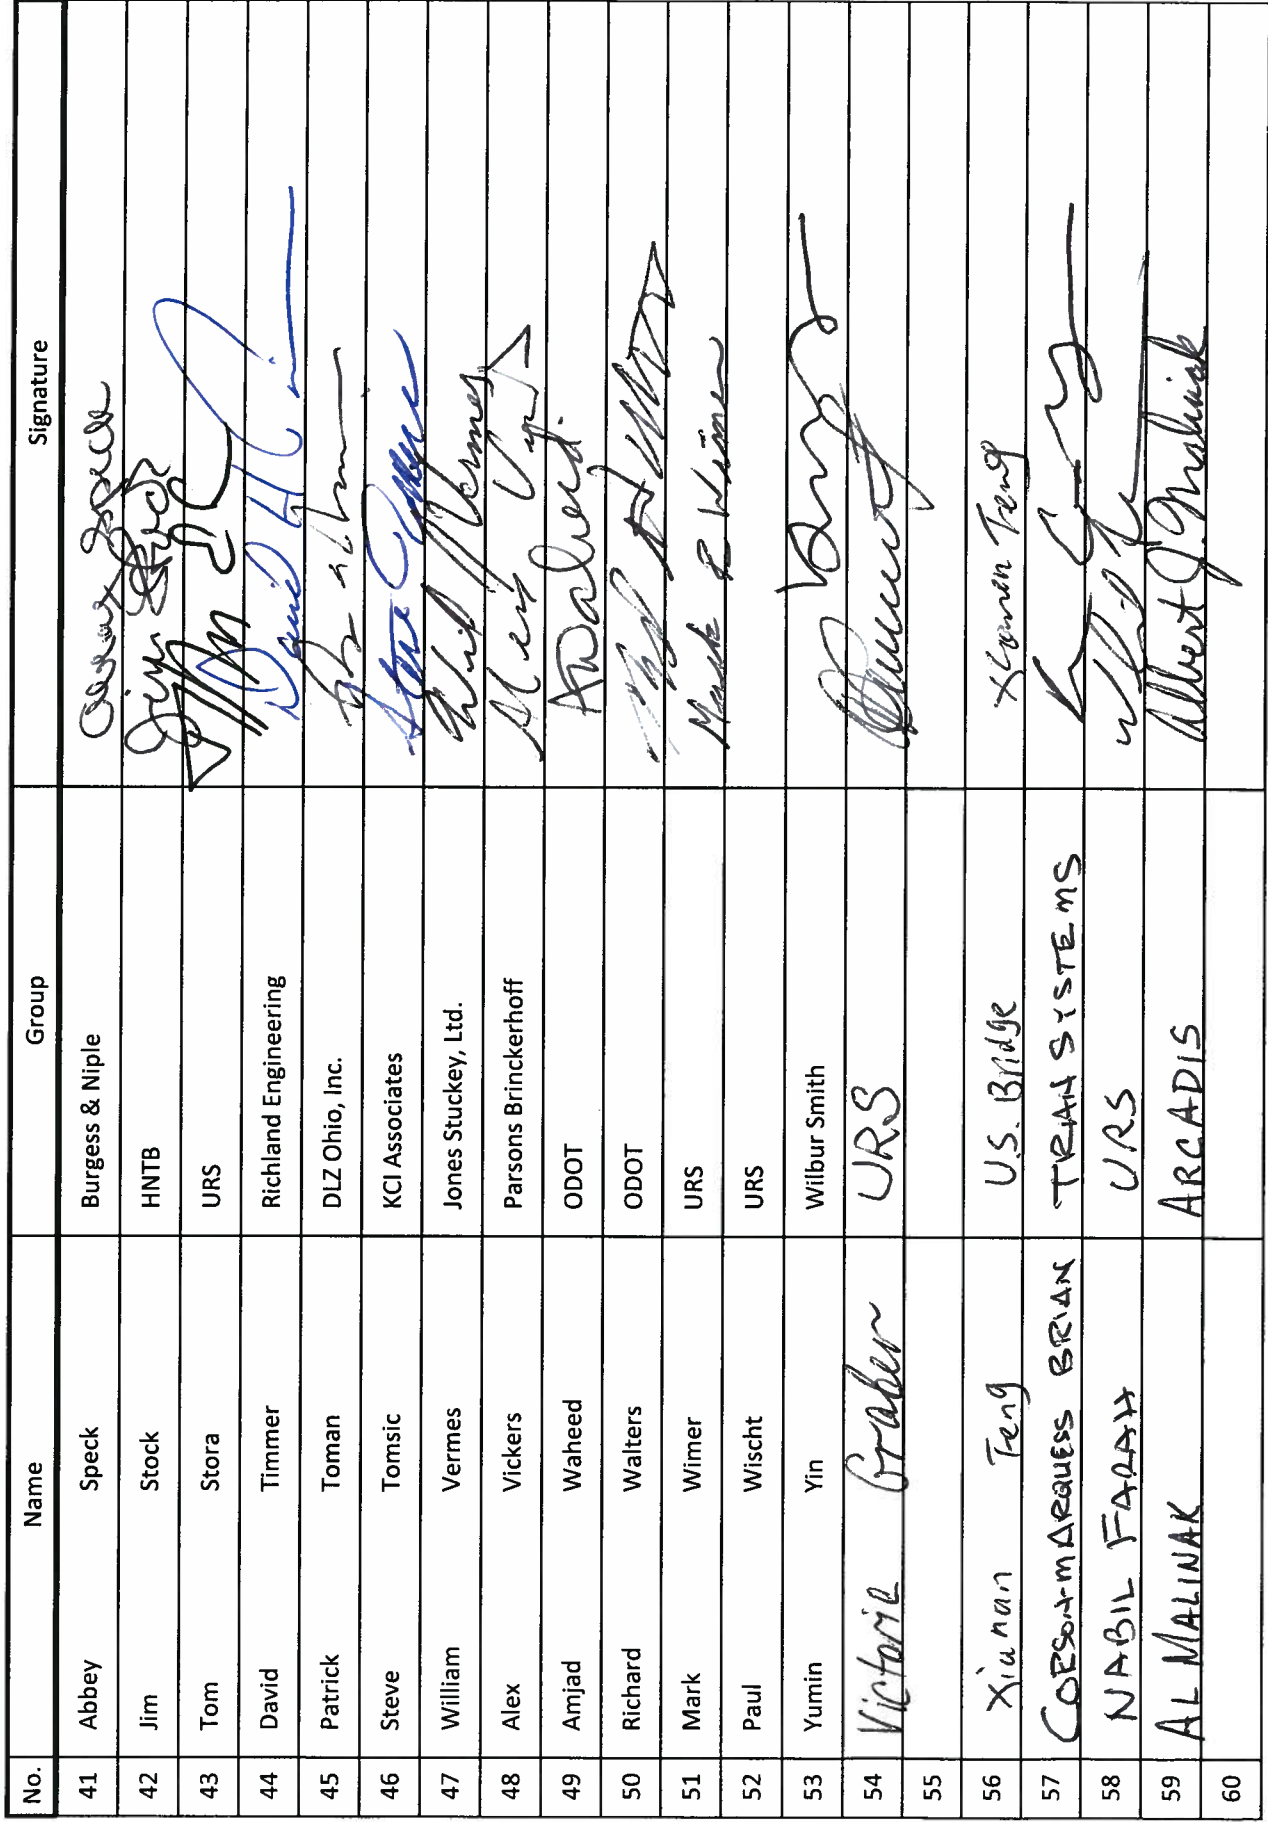 No. Name Group Signature
41 Abbey Speck Burgess & Niple Abbey Speck
42 Jim Stock HNTB Jim Stock
43 Tom Stora URS
44 David Timmer Richland Engineering David
45 Patrick Toman DLZ Ohio, Inc.
46 Steve Tomsic KCI Associates Steve
47 William Vermes Jones Stuckey, Ltd. Vermes
48 Alex Vickers Parsons Brinckerhoff Alex
49 Amjad Waheed ODOT AWaheed
50 Richard Walters ODOT
51 Mark Wimer URS Mark R Wimer
52 Paul Wischt URS
53 Yumin Yin Wilbur Smith
54 Victoria Graber URS
55
56 Xiunan Teng U.S. Bridge Xiunan Teng
57 CORSON-MARQUESS BRIAN TRANSYSTEMS
58 NABIL FARAH URS
59 AL MALINAK ARCADIS Albert J. Malinak
60